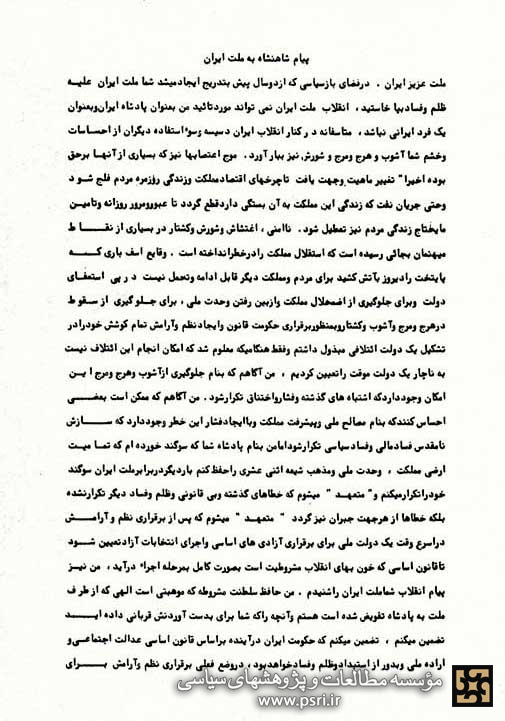 پیام شاهنشاه به ملت ایران
ملت عزیز ایران . درفضای بازسیاسی که ازدوسال پیش بتدریج ایجادمیشد شما ملت ایران علیه
ظلم وفسادبپا خاستید ، انقلاب ملت ایران نمی تواند موردتائید من بعنوان پادشاه ایران‌وبعنوان
یک فرد ایرانی نباشد ، متاسفانه در کنار انقلاب ایران دسیسه وسوءاستفاده دیگران از احساسات
وخشم شما آشوب و هرج ومرج و شورش نیز ببار آورد . موج اعتصابها نیز که بسیاری از آنها برحق
بوده اخیرا" تغییر ماهیت وجهت یافت تاچرخهای اقتصادمملکت وزندگی روزمره مردم فلج شود
وحتی جریان نفت که زندگی این مملکت به آن بستگی داردقطع گردد تا عبورومرور روزانه وتامین
مایحتاج زندگی مردم نیز تعطیل شود . ناامنی ، اغتشاش وشورش وکشتار در بسیاری از نقاط
میهنمان بجائی رسیده است که استقلال مملکت رادرخطرانداخته است . وقایع اسف باری که
پایتخت رادیروز بآتش کشید برای مردم ومملکت دیگر قابل ادامه وتحمل نیست در پی استعفای
دولت وبرای جلوگیری از اضمحلال مملکت وازبین رفتن وحدت ملی ، برای جلوگیری از سقوط
درهرج ومرج وآشوب وکشتاروبمنظوربرقراری حکومت قانون وایجادنظم وآرامش تمام کوشش خودرادر
تشکیل یک دولت ائتلافی مبذول داشتم وفقط هنگامیکه معلوم شد که امکان انجام این ائتلاف نیست
به ناچار یک دولت موقت راتعیین کردیم ، من آگاهم که بنام جلوگیری ازآشوب وهرج ومرج این
امکان وجودداردکه اشتباه های گذشته وفشارواختناق تکرارشود . من آگاهم که ممکن است بعضی
احساس کنندکه بنام مصالح ملی وپیشرفت مملکت وباایجادفشار این خطر وجوددارد که سازش
نامقدس فسادمالی وفسادسیاسی تکرارشوداما‌من بنام پادشاه شما که سوگند خورده ام که تمامیت
ارضی مملکت ، وحدت ملی ومذهب شیعه اثنی عشری راحفظ کنم باردیگردربرابرملت ایران سوگند
خودراتکرارمیکنم و" متعهد " میشوم که خطاهای گذشته وبی قانونی وظلم وفساد دیگر تکرارنشده
بلکه خطاها ازهرجهت جبران نیز گردد " متعهد " میشوم که پس از برقراری نظم و آرامش
دراسرع وقت یک دولت ملی برای برقراری آزادی های اساسی واجرای انتخابات آزادتعیین شود
تاقانون اساسی که خون بهای انقلاب مشروطیت است بصورت کامل بمرحله اجراء درآید ، من نیز
پیام انقلاب شماملت ایران راشنیدم . من حافظ سلطنت مشروطه که موهبتی است الهی که از طرف
ملت به پادشاه تفویض شده است هستم وآنچه راکه شما برای بدست آوردنش قربانی داده اید
تضمین میکنم ، تضمین میکنم که حکومت ایران درآینده براساس قانون اساسی عدالت اجتماعی‌و
اراده ملی وبدور از استبدادوظلم وفسادخواهدبود ، دروضع فعلی برقراری نظم وآرامش برای
مؤسسه مطالعات و پژوهشهای سیاسی
www.psri.ir